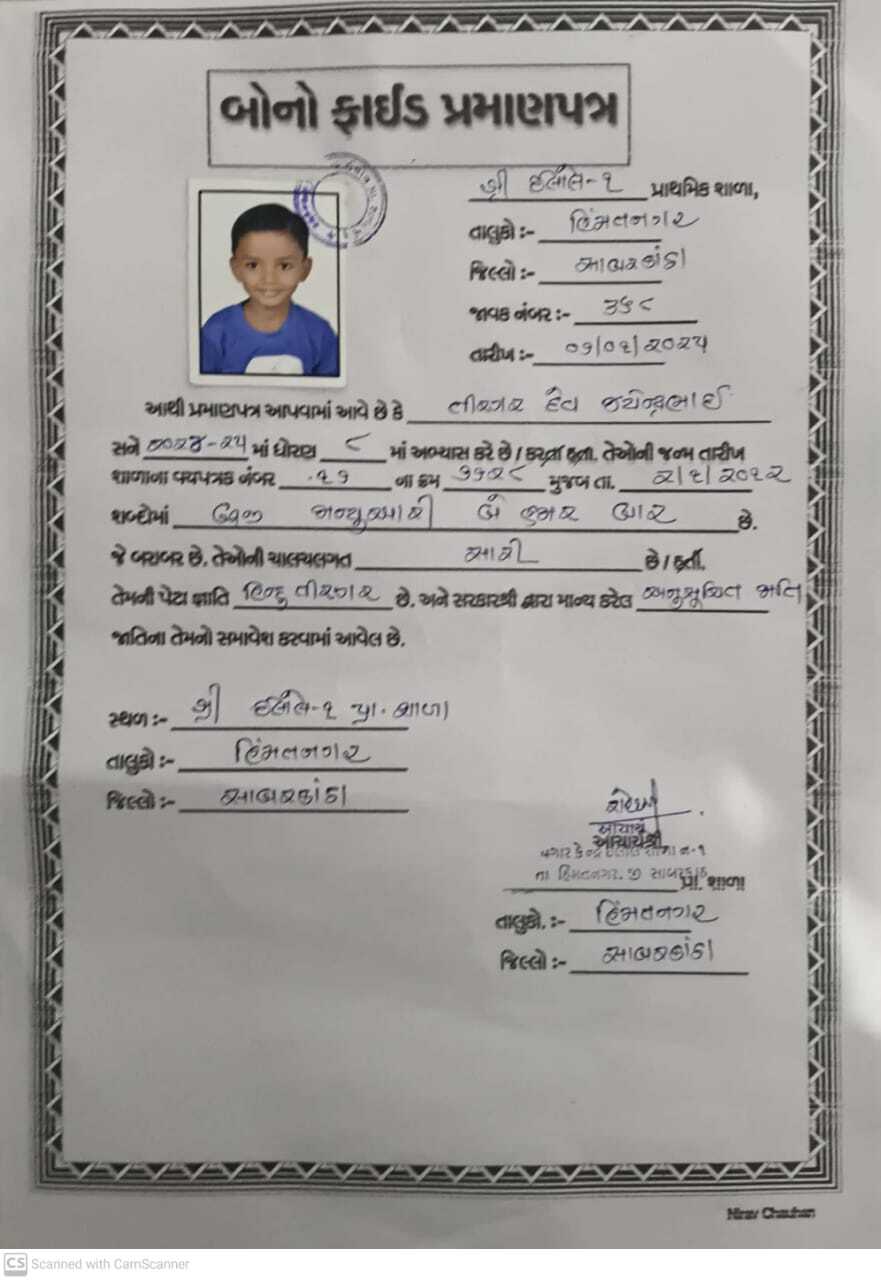 બોનો ફાઈડ પ્રમાણપત્ર
શ્રી ઈલોલ-૧ પ્રાથમિક શાળા,
તાલુકો :- હિંમતનગર
જિલ્લો :- સાબરકાંઠા
જાવક નંબર :-
તારીખ :- ૨૦૨૫
આથી પ્રમાણપત્ર આપવામાં આવે છે કે તીરગર દેવ જયેન્દ્રભાઈ
સને ૨૦૨૪-૨૫ માં ધોરણ ૮ માં અભ્યાસ કરે છે / કરતા હતા. તેઓની જન્મ તારીખ
શાળાના વયપત્રક નંબર ના ક્રમ મુજબ તા. ૨/૧/૨૦૧૨
શબ્દોમાં બીજી જાન્યુઆરી બે હજાર બાર છે.
જે બરાબર છે. તેઓની ચાલચલગત સારી છે / હતી.
તેમની પેટા જ્ઞાતિ હિન્દુ તીરગર છે. અને સરકારશ્રી દ્વારા માન્ય કરેલ અનુસૂચિત જાતિ
જાતિના તેમનો સમાવેશ કરવામાં આવેલ છે.
સ્થળ :- શ્રી ઈલોલ-૧ પ્રા. શાળા
તાલુકો :- હિંમતનગર
જિલ્લો :- સાબરકાંઠા
આચાર્ય
આચાર્યશ્રી
પગાર કેન્દ્ર ઈલોલ શાળા નં-૧
તા હિંમતનગર. જી સાબરકાંઠા
પ્રા. શાળા
તાલુકો. :- હિંમતનગર
જિલ્લો :- સાબરકાંઠા
Nirav Chauhan
CS Scanned with CamScanner